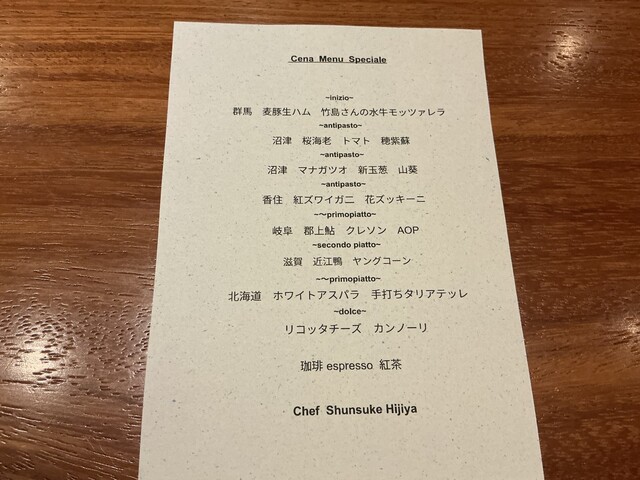 Cena Menu Speciale
~inizio~
群馬 麦豚生ハム 竹島さんの水牛モッツァレラ
~antipasto~
沼津 桜海老 トマト 穂紫蘇
~antipasto~
沼津 マナガツオ 新玉葱 山葵
~antipasto~
香住 紅ズワイガニ 花ズッキーニ
~〜primopiatto~
岐阜 郡上鮎 クレソン AOP
~secondo piatto~
滋賀 近江鴨 ヤングコーン
~〜primopiatto~
北海道 ホワイトアスパラ 手打ちタリアテッレ
~dolce~
リコッタチーズ カンノーリ
珈琲 espresso 紅茶
Chef Shunsuke Hijiya